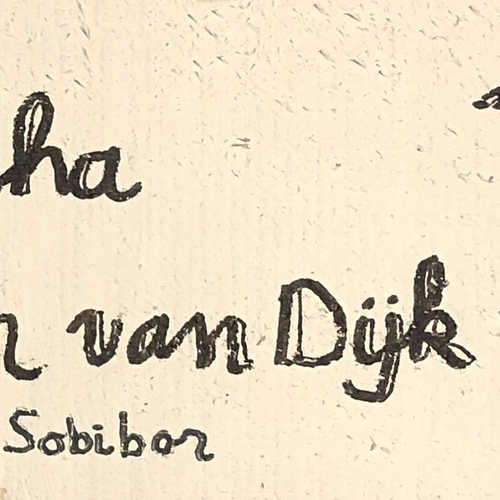 ha
van Dijk
Sobibor